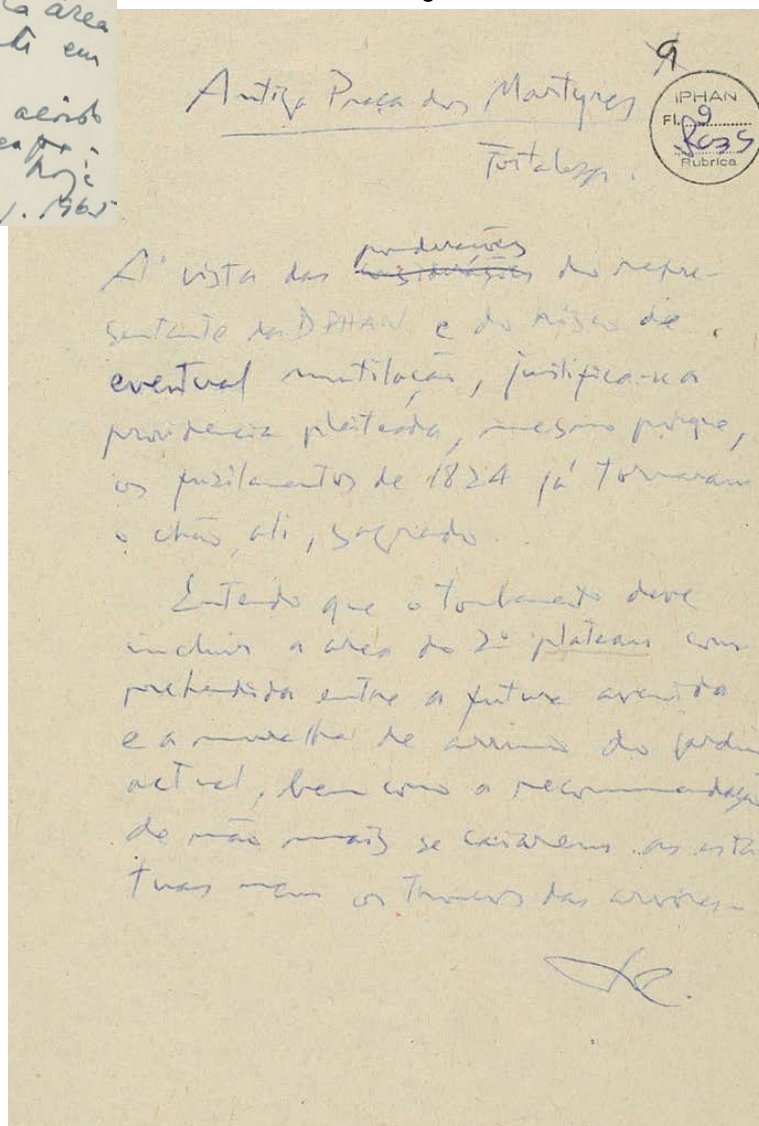 ra área
em
hoje
1965
Antiga Praça dos Martyres
Fortaleza.
9
IPHAN
Fl. 9
Rubrica
A' vista das ponderações do repre-
sentante da DPHAN e do risco de
eventual mutilação, justifica-se a
providencia pleiteada, mesmo porque,
os fuzilamentos de 1824 já tornaram
o chão, ali, sagrado.
Entendo que o tombamento deve
incluir a area do 2º plateau com-
prehendida entre a futura avenida
e a muralha de arrimo do jardim
actual, bem como a recommendação
de não mais se caiarem as está-
tuas nem os troncos das arvores.